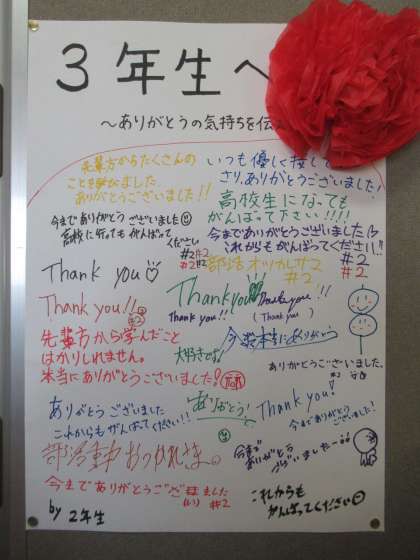 ３年生へ
～ありがとうの気持ちを伝
先輩方からたくさんの
ことを学びました
ありがとうございました!!
いつも優しく接して
さり、ありがとうございました!
高校生になっても
がんばって下さい!!!!
今までありがとうございました
高校に行ってもがんばって
ください
#2 #2
#2 #2
今までありがとうございました
これからもがんばってください!!
#2
部活オツカレサマ
#2
#2
Thank you
Thank you!!
Thank you!!
Thank you!!
Thank you!!
(Thank you)
先輩方から学んだこと
はかりしれません。
本当にありがとうございました!
大好きです!
今まで本当にありがとう
ありがとうございました。
#2
ありがとうございました
これからもがんばってください!!
ありがとう!
Thank you!
今までありがとう
ございました!
部活動おつかれさま。
今まで
ありがとう
ございました
今までありがとうございました
(い) #2
これからも
がんばってください
by 2年生